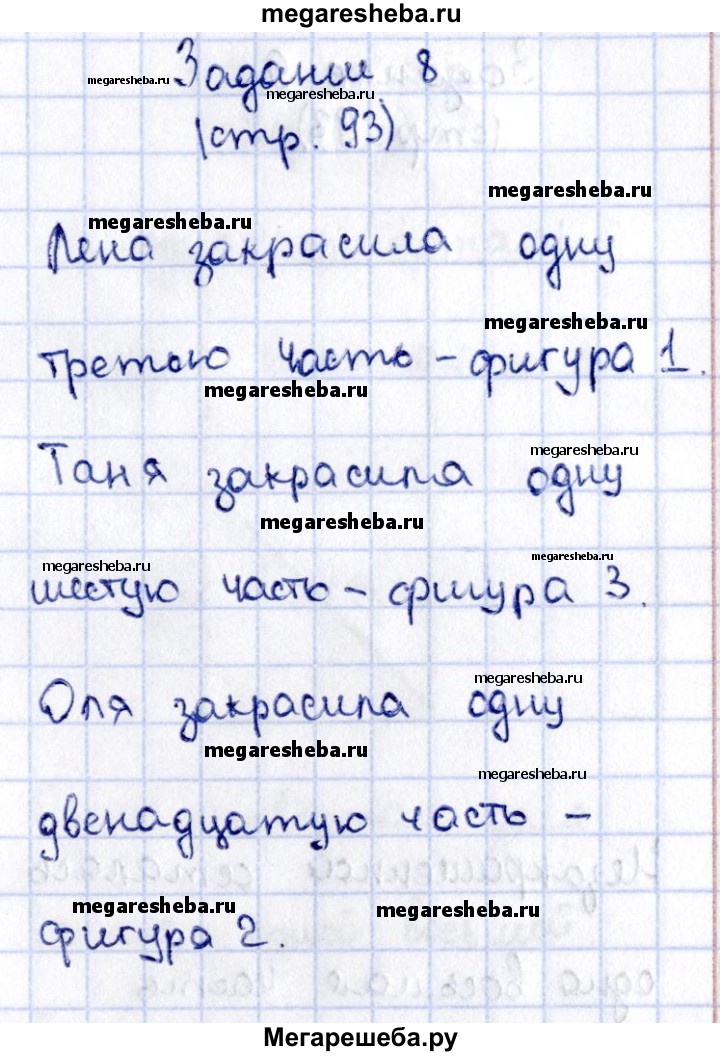 megaresheba.ru
Задании 8
megaresheba.ru
megaresheba.ru
(стр. 93)
megaresheba.ru
megaresheba.ru
Лена закрасила одну
megaresheba.ru
третью часть - фигура 1.
megaresheba.ru
megaresheba.ru
Таня закрасила одну
megaresheba.ru
megaresheba.ru
megaresheba.ru
шестую часть - фигура 3.
megaresheba.ru
Оля закрасила одну
megaresheba.ru
megaresheba.ru
двенадцатую часть -
megaresheba.ru
megaresheba.ru
фигура 2.
Мегарешеба.ру